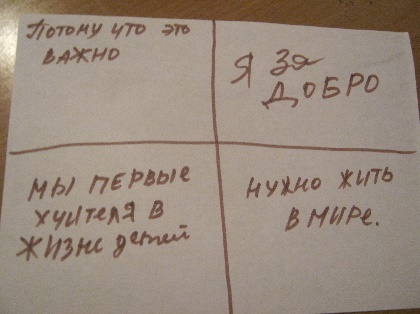 Потому что это
ВАЖНО
Я За
ДОБРО
МЫ ПЕРВЫЕ
ХУИТЕЛЯ В
ЖИЗНЕ детей
НУЖНО ЖИТЬ
В МИРЕ.